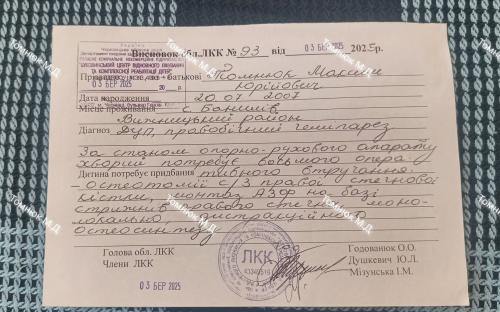 Висновок обл.ЛКК № 93 від 03 БЕР 2025 2025р.
Україна
03 БЕР 2025
Прізвище, ім'я, по батькові Томнюк Максим
Юрійович
Дата народження 20.07.2007
Місце проживання с. Банилів
Вижницький район
Діагноз ДЦП, правобічний геміпарез
За станом опорно-рухового апарату
хворий потребує восьмого опера-
Дитина потребує придбання тивного втручання
- остеотомії с/3 правої стегнової
кістки, монтаж АЗФ на базі
стрижнів правого стегна моно-
локально, дистракційного
остеосинтезу
Голова обл. ЛКК Годованюк О.О.
Члени ЛКК Душкевич Ю.Л.
Мізунська І.М.
ЛКК
03 БЕР 2025
Томнюк М.Д